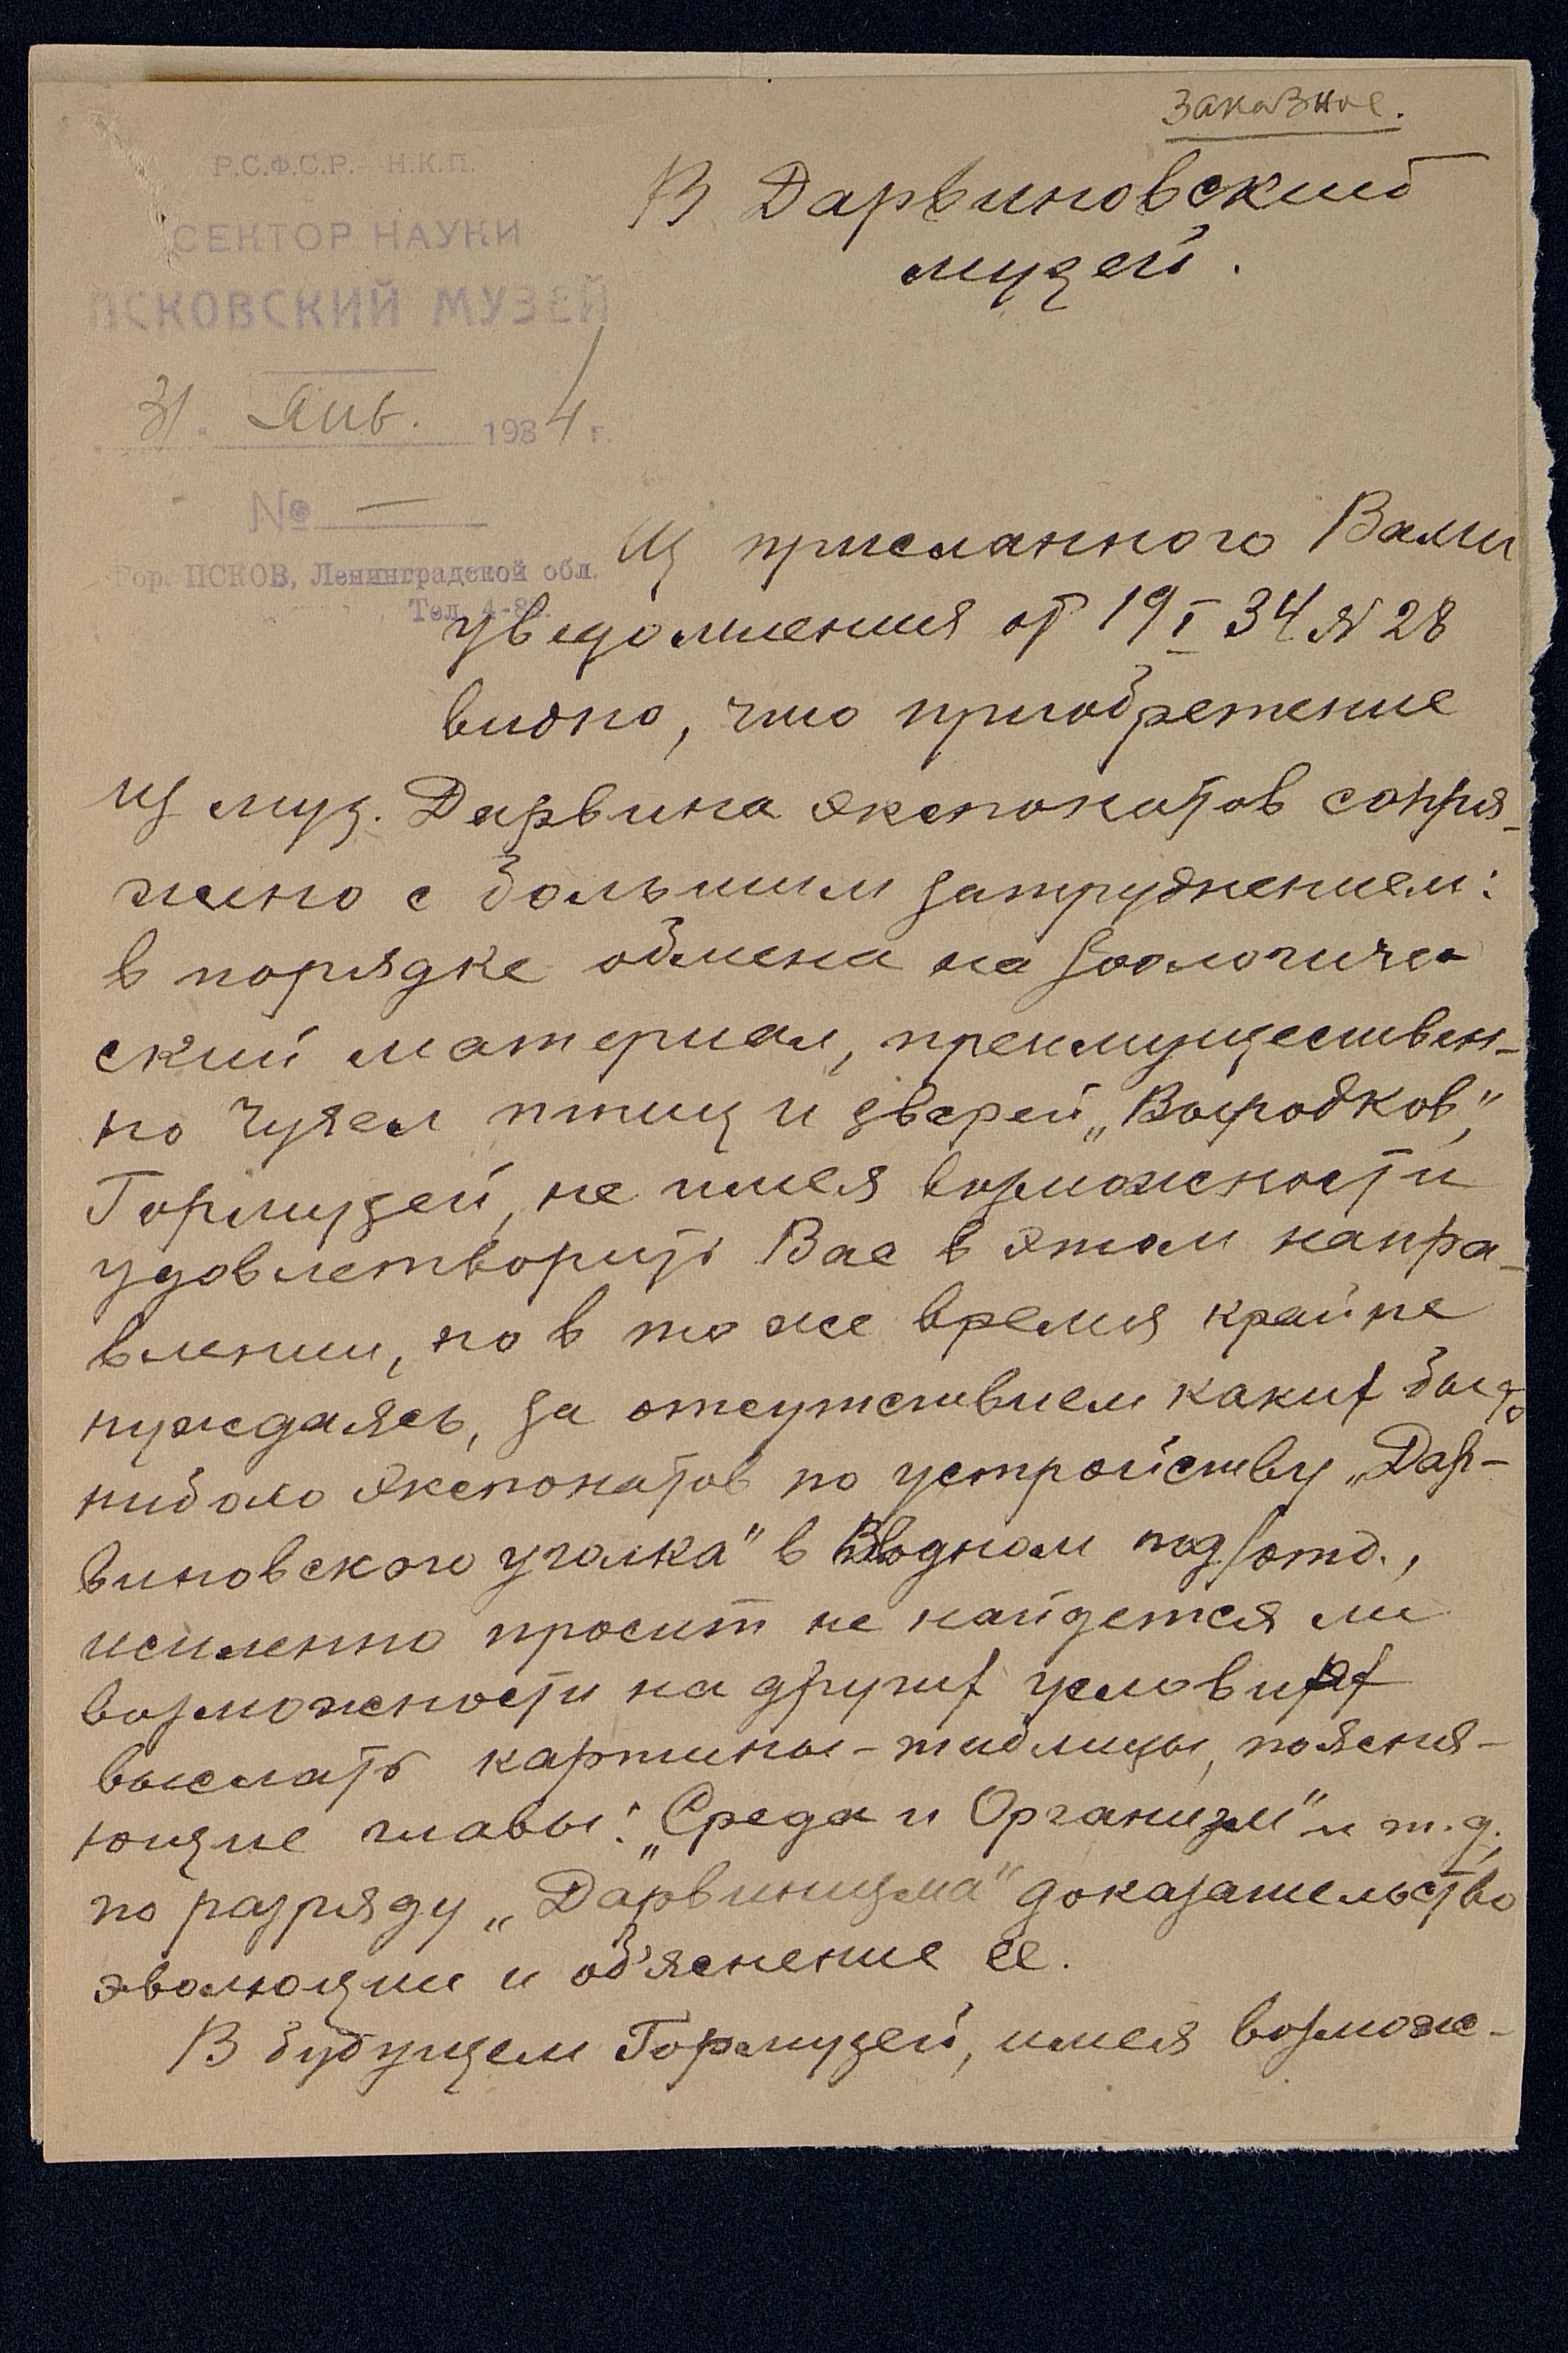 Заказное.
Р.С.Ф.С.Р. Н.К.П.
СЕКТОР НАУКИ
ПСКОВСКИЙ МУЗЕЙ
31. Янв. 1934 г.
№ —
Гор. ПСКОВ, Ленинградской обл.
Тел. 4-8
В Дарвиновский
музей.
Из присланного Вами
уведомления от 19 I 34 № 28
видно, что приобретение
из муз. Дарвина экспонатов сопря-
жено с большим затруднением:
в порядке обмена на зоологиче-
ский материал, преимуществен-
но чучел птиц и зверей „Выродков",
Гормузей, не имея возможности
удовлетворить Вас в этом напра-
влении, но в то же время крайне
нуждаясь, за отсутствием каких бы то
нибыло экспонатов по устройству „Дар-
виновского уголка" в Вводном под/отд.,
усиленно просит не найдется ли
возможности на других условиях
выслать картины-таблицы, поясня-
ющие главы: „Среда и Организм" и т.д.,
по разряду „Дарвинизма" доказательство
эволюции и об'яснение ее.
В будущем Гормузей, имея возмож-